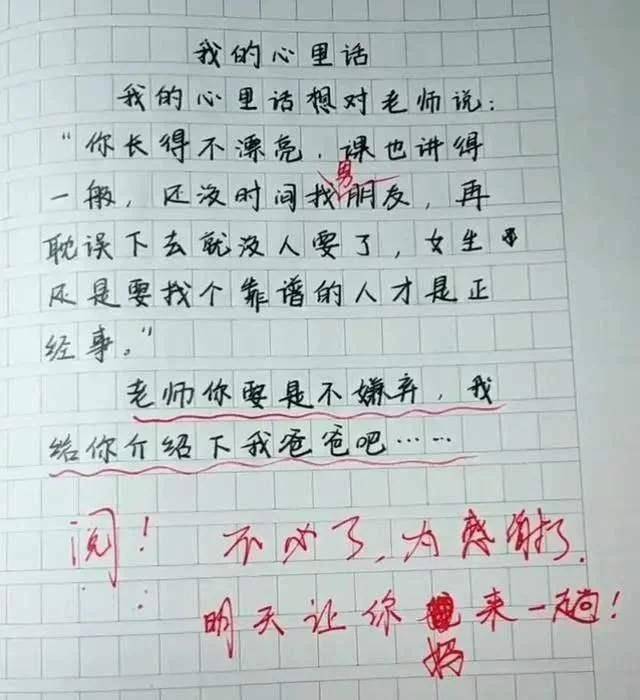 我的心里话
我的心里话想对老师说：
“你长得不漂亮，课也讲得
一般，还没时间找男朋友，再
耽误下去就没人要了，女生
还是要找个靠谱的人才是正
经事。”
老师你要是不嫌弃，我
给你介绍下我爸爸吧……
阅！ 不必了，太感谢了.
明天让你妈来一趟！